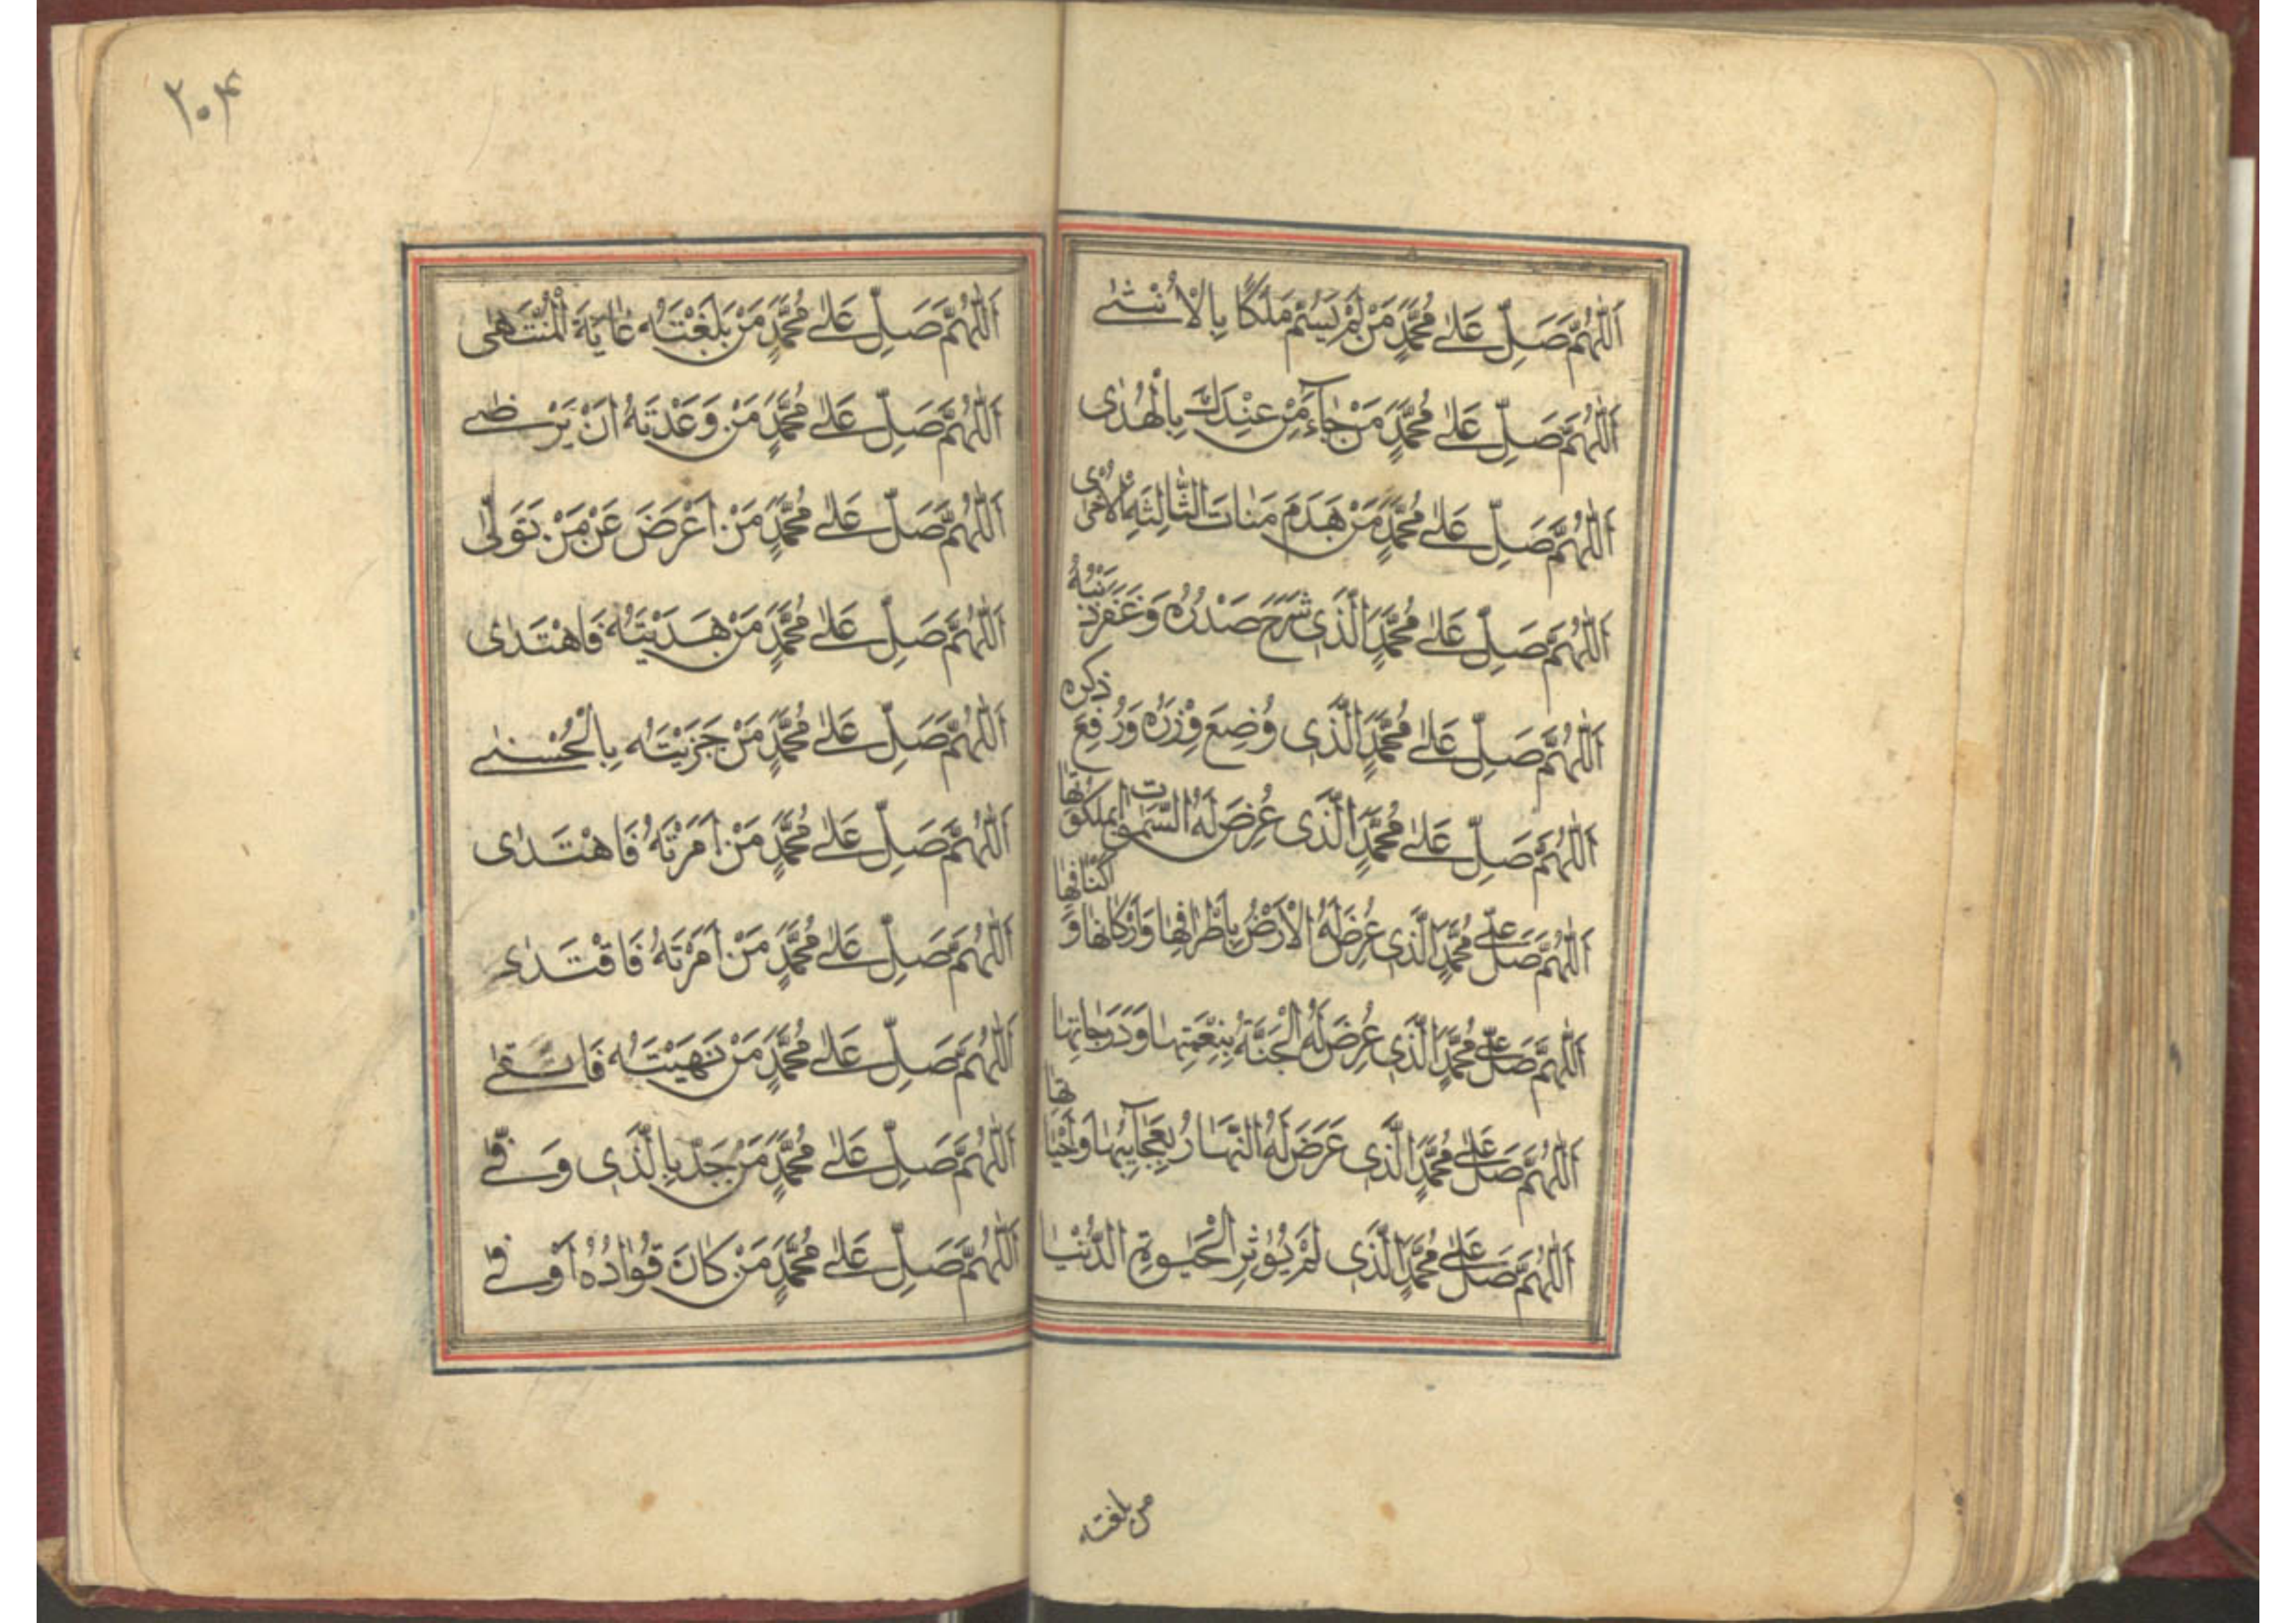 اَللّٰهُمَّ صَلِّ عَلٰى مُحَمَّدٍ مَنْ لَمْ يُسَمِّ مَلَكًا بِالْاُنْثٰى
اَللّٰهُمَّ صَلِّ عَلٰى مُحَمَّدٍ مَنْ جَآءَ مِنْ عِنْدِكَ بِالْهُدٰى
اَللّٰهُمَّ صَلِّ عَلٰى مُحَمَّدٍ مَنْ هَدَمَ مَنَاتَ الثَّالِثَةِ الْاُخْرٰى
اَللّٰهُمَّ صَلِّ عَلٰى مُحَمَّدٍ الَّذِى شَرَحَ صَدْرُهُ وَغَفَرَ ذَنْبُهُ
اَللّٰهُمَّ صَلِّ عَلٰى مُحَمَّدٍ الَّذِى وُضِعَ وِزْرُهُ وَرُفِعَ ذِكره
اَللّٰهُمَّ صَلِّ عَلٰى مُحَمَّدٍ الَّذِى عُرِضَ لَهُ السَّمٰوٰات بِمَلَكُوتِهَا
اَللّٰهُمَّ صَلِّ عَلٰى مُحَمَّدٍ الَّذِى عُرِضَ لَهُ الْاَرْضُ بِاَطْرَافِهَا وَاَرْكَانِهَا وَ اَكْنَافِهَا
اَللّٰهُمَّ صَلِّ عَلٰى مُحَمَّدٍ الَّذِى عُرِضَ لَهُ الْجَنَّةُ بِنِعْمَتِهَا وَدَرَجَاتِهَا
اَللّٰهُمَّ صَلِّ عَلٰى مُحَمَّدٍ الَّذِى عَرَضَ لَهُ النَّهَارُ بِعَجَآئِبِهَا
اَللّٰهُمَّ صَلِّ عَلٰى مُحَمَّدٍ الَّذِى لَمْ يُؤْثِرِ الْحَيٰوةِ الدُّنْيَا
من بلغته
٢٠۴
اَللّٰهُمَّ صَلِّ عَلٰى مُحَمَّدٍ مَنْ بَلَغْتَهُ غَايَةَ الْمُنْتَهٰى
اَللّٰهُمَّ صَلِّ عَلٰى مُحَمَّدٍ مَنْ وَعَدْتَهُ اَنْ يَرْضٰى
اَللّٰهُمَّ صَلِّ عَلٰى مُحَمَّدٍ مَنْ اَعْرَضَ عَنْ مَنْ تَوَلّٰى
اَللّٰهُمَّ صَلِّ عَلٰى مُحَمَّدٍ مَنْ هَدَيْتَهُ فَاهْتَدٰى
اَللّٰهُمَّ صَلِّ عَلٰى مُحَمَّدٍ مَنْ جَزَيْتَهُ بِالْحُسْنٰى
اَللّٰهُمَّ صَلِّ عَلٰى مُحَمَّدٍ مَنْ اَمَرْتَهُ فَاهْتَدٰى
اَللّٰهُمَّ صَلِّ عَلٰى مُحَمَّدٍ مَنْ اَمَرْتَهُ فَاقْتَدٰى
اَللّٰهُمَّ صَلِّ عَلٰى مُحَمَّدٍ مَنْ نَهَيْتَهُ فَاتَّقٰى
اَللّٰهُمَّ صَلِّ عَلٰى مُحَمَّدٍ مَنْ جَدَّ بِالَّذِى وَفّٰى
اَللّٰهُمَّ صَلِّ عَلٰى مُحَمَّدٍ مَنْ كَانَ فُوَادُهُ اَوْفٰى